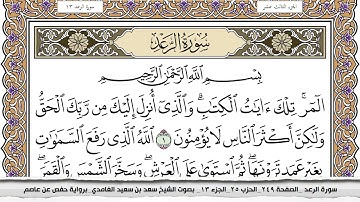 الجزء الثالث عشر
سورة الرعد ١٣
سُورَةُ الرَّعْدِ
بِسْمِ اللَّهِ الرَّحْمَٰنِ الرَّحِيمِ
الٓمٓر ۚ تِلْكَ ءَايَٰتُ الْكِتَٰبِ ۗ وَالَّذِىٓ أُنزِلَ إِلَيْكَ مِن رَّبِّكَ الْحَقُّ
وَلَٰكِنَّ أَكْثَرَ النَّاسِ لَا يُؤْمِنُونَ ١ اللَّهُ الَّذِى رَفَعَ السَّمَٰوَٰتِ
بِغَيْرِ عَمَدٍ تَرَوْنَهَا ۖ ثُمَّ اسْتَوَىٰ عَلَى الْعَرْشِ ۖ وَسَخَّرَ الشَّمْسَ وَالْقَمَرَ ۖ
سورة الرعد _ الصفحة ٢٤٩_ الحزب ٢٥_ الجزء ١٣_ بصوت الشيخ سعد بن سعيد الغامدي_ برواية حفص عن عاصم